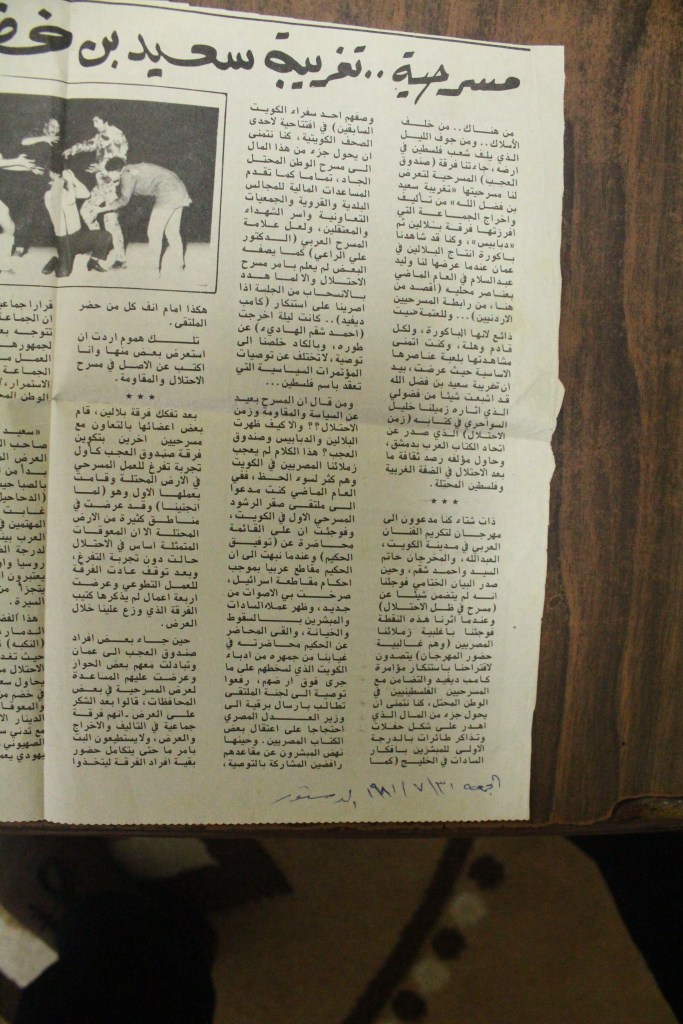 مسرحية .. تغريبة سعيد بن فضـ
من هناك .. من خلف
الأسلاك .. ومن جوف الليل
الذي يلف شعب فلسطين في
ارضه، جاءتنا فرقة (صندوق
العجب) المسرحية لتعرض
لنا مسرحيتها «تغريبة سعيد
بن فضل الله» من تأليف
واخراج الجماعة التي
افرزتها فرقة بلالين ثم
«دبابيس»، وكنا قد شاهدنا
باكورة انتاج البلالين في
عمان عندما عرضها لنا وليد
عبدالسلام في العام الماضي
بعناصر محليه (اقصد من
هنا، من رابطة المسرحيين
الاردنيين) ... وللعتمة صيت
ذائع لانها الباكورة، ولكل
قادم وهلة، وكنت اتمنى
مشاهدتها بلعبة عناصرها
الاساسية حيث عرضت، بيد
ان تغريبة سعيد بن فضل الله
قد اشبعت شيئا من فضولي
الذي اثاره زميلنا خليل
السواحري في كتابه (زمن
الاحتلال) الذي صدر عن
اتحاد الكتاب العرب بدمشق،
وحاول مؤلفه رصد ثقافة ما
بعد الاحتلال في الضفة الغربية
وفلسطين المحتلة.
* * *
ذات شتاء كنا مدعوون الى
مهرجان لتكريم الفنان
العربي في مدينة الكويت،
العبدالله، والمخرجان حاتم
السيد واحمد شقم، وحين
صدر البيان الختامي فوجئنا
انه لم يتضمن شيئا عن
(مسرح في ظل الاحتلال)
وعندما اثرنا هذه النقطة
فوجئنا باغلبية زملائنا
المصريين (وهم غالبية
حضور المهرجان) يتصدون
لاقتراحنا باستنكار مؤامرة
كامب ديفيد والتضامن مع
المسرحيين الفلسطينيين في
الوطن المحتل، كنا نتمنى ان
يحول جزء من المال الذي
اهدر على شكل حفلات
وتذاكر طائرات بالدرجة
الاولى للمبشرين بافكار
السادات في الخليج (كما
وصفهم احد سفراء الكويت
السابقين) في افتتاحية لاحدى
الصحف الكويتية، كنا نتمنى
ان يحول جزء من هذا المال
الى مسرح الوطن المحتل
الجاد، تماما كما تقدم
المساعدات المالية للمجالس
البلدية والقروية والجمعيات
التعاونية واسر الشهداء
والمعتقلين، ولعل علامة
المسرح العربي (الدكتور
علي الراعي) كما يصفه
البعض لم يعلم بامر مسرح
الاحتلال والا لما هدد
بالانسحاب من الجلسة اذا
اصرينا على استنكار (كامب
ديفيد) .. كانت ليلة اخرجت
(احمد شقم الهادىء) عن
طوره، وبالكاد خلصنا الى
توصية، لاتختلف عن توصيات
المؤتمرات السياسية التي
تعقد باسم فلسطين ...
ومن قال ان المسرح بعيد
عن السياسة والمقاومة وزمن
الاحتلال؟؟ والا كيف ظهرت
البلالين والدبابيس وصندوق
العجب؟ هذا الكلام لم يعجب
زملائنا المصريين في الكويت
وهم كثر لسوء الحظ، ففي
العام الماضي كنت مدعوا
الى ملتقى صقر الرشود
المسرحي الاول في الكويت،
وفوجئت ان على القائمة
محاضرة عن (توفيق
الحكيم) وعندما نبهت الى ان
الحكيم مقاطع عربيا بموجب
احكام مقاطعة اسرائيل،
صرخت بي الاصوات من
جديد، وظهر عملاء السادات
والمبشرين بالسقوط
والخيانة، والقى المحاضر
عن الحكيم محاضرته في
غيابنا من جمهره من ادباء
الكويت الذي لسخطهم على ما
جرى فوق ارضهم، رفعوا
توصية الى لجنة الملتقى
تطالب بارسال برقية الى
وزير العدل المصري
احتجاجا على اعتقال بعض
الكتاب المصريين. وحينها
نهض المبشرون عن مقاعدهم
رافضين المشاركة بالتوصية،
هكذا امام انف كل من حضر
الملتقى.
تلك هموم اردت ان
استعرض بعض منها وانا
اكتب عن الاصل في مسرح
الاحتلال والمقاومة.
* * *
بعد تفكك فرقة بلالين، قام
بعض اعضائها بالتعاون مع
مسرحيين آخرين بتكوين
فرقة صندوق العجب كأول
تجربة تفرغ للعمل المسرحي
في الارض المحتلة وقامت
بعملها الاول وهو (لما
انجنينا) وقد عرضت في
مناطق كثيرة من الارض
المحتلة الا ان المعوقات
المتمثلة اساس في الاحتلال
حالت دون تجربة التفرغ،
وبعد توقف عادت الفرقة
للعمل التطوعي وعرضت
اربعة اعمال لم يذكرها كتيب
الفرقة الذي وزع علينا خلال
العرض.
حين جاء بعض افراد
صندوق العجب الى عمان
وتبادلت معهم بعض الحوار
وعرضت عليهم المساعدة
لعرض المسرحية في بعض
المحافظات، قالوا بعد الشكر
على العرض .. انهم فرقة
جماعية في التأليف والاخراج
والعرض، ولا يستطيعون البت
بأمر ما حتى يتكامل حضور
بقية افراد الفرقة ليتخذوا
قرارا جماعيـ
ان الجماعة
تتوجه بعـ
لجمهورها
العمل مـ
الجماعة
الاستمرار،
الوطن المحـ
«سعيد
صاحب ا
العرض الو
بدأ من
بالصبا حيـ
(الدحاحيل
غابت
المهتمين في
العرب بينـ
لدرجة الظـ
روسيا واور
يعتبرون ا
يتجزأ من
السيرة.
هذا الفضـ
الدمار،
(النكبه)
حيث تغد
الاحتلال مـ
يحاول سعـ
في خضم مر
والمعوقا
الدينار الا
مع تدني سـ
الصهيوني
يهودي يعمـ
الجمعه ٣١/٧/١٩٨١ الدستور